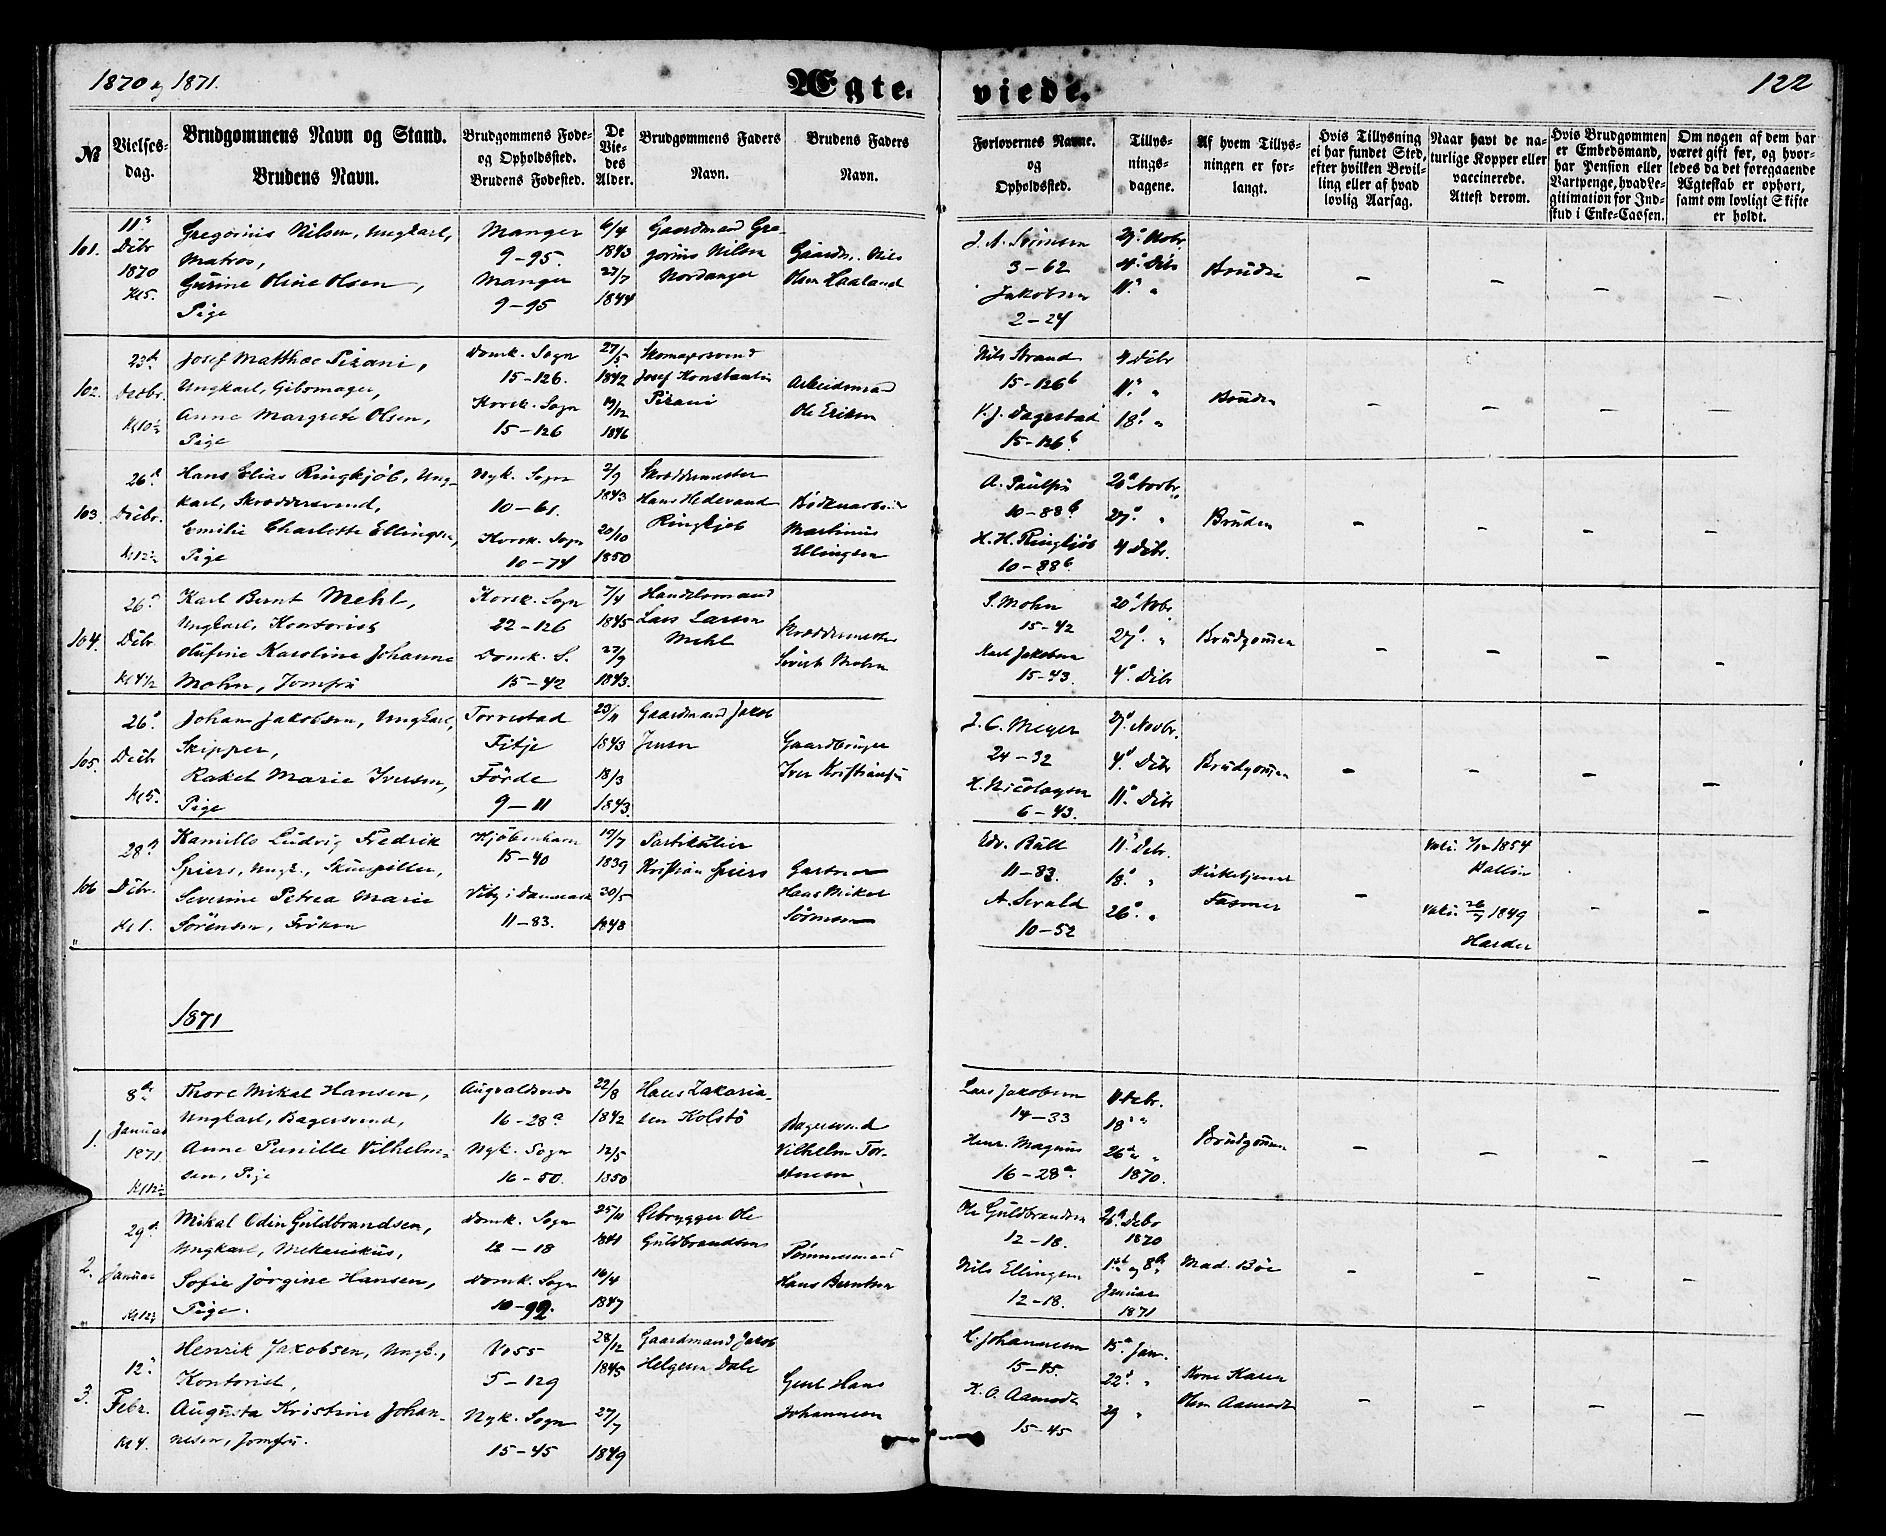 1870 og 1871.
Ægte.
viede.
122
№
Vielses-
dag.
Brudgommens Navn og Stand.
Brudens Navn.
Brudgommens Føde-
og Opholdssted.
Brudens Fødested.
De
Vie-
des
Alder.
Brudgommens Faders
Navn.
Brudens Faders
Navn.
Forlovernes Navne.
og
Opholdssted.
Tillys-
nings-
dagene.
Af hvem Tillys-
ningen er for-
langt.
Hvis Tillysning
ei har fundet Sted,
efter hvilken Bevil-
ling eller af hvad
lovlig Aarsag.
Naar havt de na-
turlige Kopper eller
vaccinerede.
Attest derom.
Hvis Brudgommen
er Embedsmand,
har Pension eller
Vartpenge, hvad Le-
gitimation for Ind-
skud i Enke-Cassen.
Om nogen af dem har
været gift før, og hvor-
ledes da det foregaaende
Ægteskab er ophørt,
samt om lovligt Skifte
er holdt.
101.
11te
Decbr
1870
Kl 5.
Gregorius Nilsen, Ungkarl,
Matros,
Gurine Oline Olsen,
Pige
Manger
9-95.
Manger
9-95
6/4
1843
27/7
1844
Gaardmand Gre-
gorius Nilsen
Nordanger
Gaardm. Nils
Olsen Haaland
3-62
Jakobsen
2-24
27de Novbr.
4de Decbr
11te "
Bruden
–
–
–
–
102.
23de
Decbr.
Kl 10½
Josef Matthæ Pizani,
Ungkarl, Gibsmager,
Anne Margrete Olsen,
Pige
Domk. Sogn
15-126.
Korsk. Sogn
15-126
27/5
1842
19/12
1846
Skomagersvend
Josef Konstantin
Pizani
Arbeidsmand
Ole Eriksen
Nils Strand
15-126b
K. J. Dagestad
15-126b
4 Decbr
11te "
18de "
Bruden
–
–
–
–
103.
26de
Decbr.
Kl 12½
Hans Elias Ringkjøb, Ung-
karl, Skræddersvend,
Emilie Charlotte Ellingsen,
Pige
Nyk. Sogn
10-61.
Korsk. Sogn
10-74
2/9
1843
20/10
1850
Skræddermester
Hans Hedevand
Ringkjøb
Martinus
Ellingsen
A. Paulsen
10-88b
H. H. Ringkjøb
10-88b.
20de Novbr.
27de "
4 Decbr.
Bruden
–
–
–
–
104.
26de
Decbr
Kl 4½
Karl Bernt Mehl,
Ungkarl, Kontorist
Olufine Karoline Johanne
Mohn, Jomfru
Korsk. Sogn
22-126
Domk. S.
15-42
7/4
1845
27/9
1843.
Handelsmand
Lars Larsen
Mehl
Skræddermester
Sivert Mohn
S. Mohn
15-42
Karl Jakobsen
15-43.
20de Novbr
27de "
4de Decbr
Brudgommen
–
–
–
–
105.
26de
Decbr
Kl 5.
Johan Jakobsen, Ungkarl,
Skipper,
Rakel Marie Iversen,
Pige
Torvestad
Fitje
Førde
9-11
23/11
1843
18/3
1843.
Gaardmand Jakob
Jensen
Gaardbruger
Iver Kristiansen
J. C. Meyer
24-32
H. Nicolaysen
6-43.
27de Novbr.
4de Decbr
11te Decbr
Brudgommen
–
–
–
–
106
28de
Decbr.
Kl 1.
"
Kamillo Ludvig Fredrik
Spiers, Ungk., Skuespiller,
Severine Petrea Marie
Sørensen, Frøken
Kjøbenhavn
15-40
Viby i Danmark
11-83.
19/7
1839
30/5
1848
Partikulier
Kristian Spiers
Gartner
Hans Mikal
Sørensen
Edv. Bull
11-83.
A. Sevald
10-52
11te Decbr.
18de "
26de "
Kirketjener
Fasmer
–
Vaki. 7/12 1854
Vaki. 26/9 1849
Harder
–
–
1871
1.
8de
Januar
1871
Kl 12½
Thore Mikal Hansen,
Ungkarl, Bagersvend,
Anne Pernille Vilhelm-
sen, Pige
Augvaldsnes
16-28a
Nyk. Sogn
16-50.
22/8
1842
12/5
1850
Hans Zakaria-
sen Kolstø
Bagersvend
Vilhelm Tor-
stensen
Lars Jakobsen
14-33
Henr. Magnus
16-28a
11 Decbr.
18de "
26de "
1870.
Brudgommen
–
–
–
–
2.
29de
Januar
Kl 12½
"
Mikal Odin Guldbrandsen,
Ungkarl, Mekanikus,
Sofie Jørgine Hansen,
Pige.
Domk. Sogn
12-18
Domk. Sogn
10-92.
25/11
1844
16/4
1847
Ølbrygger Ole
Guldbrandsen
Tømmermand
Hans Berntsen
Ole Guldbrandsen
12-18.
Nils Ellingsen
12-18.
26de Decbr
1870
1ste og 8de
Januar
1871
Mad. Bøe
–
–
–
–
3.
12te
Febr.
Kl 4.
Henrik Jakobsen, Ungk.,
Kontorist,
Augusta Kristine Johan-
nesen, Jomfru.
Voss
5-129
Nyk. Sogn
15-45
28/12
1845
27/7
1849
Gaardmand Jakob
Helgesen Dale
Gert Hans
Johannesen
H. Johannesen
15-45.
K. O. Aamodt
15-45
15de Jan.
22de "
29 "
Kone Karen
Olsen Aamodt
–
–
–
–